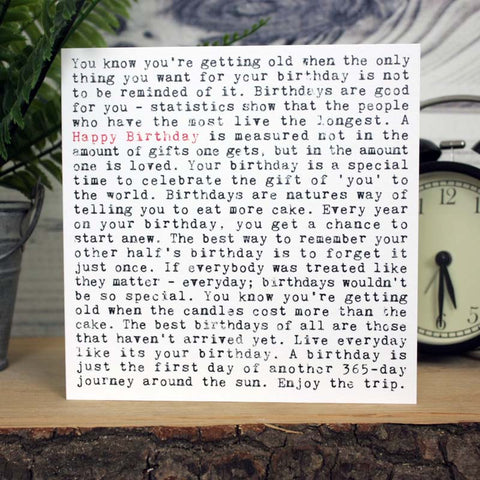 You know you're getting old when the only
thing you want for your birthday is not
to be reminded of it. Birthdays are good
for you - statistics show that the people
who have the most live the longest. A
Happy Birthday is measured not in the
amount of gifts one gets, but in the amount
one is loved. Your birthday is a special
time to celebrate the gift of 'you' to
the world. Birthdays are natures way of
telling you to eat more cake. Every year
on your birthday, you get a chance to
start anew. The best way to remember your
other half's birthday is to forget it
just once. If everybody was treated like
they matter - everyday; birthdays wouldn't
be so special. You know you're getting
old when the candles cost more than the
cake. The best birthdays of all are those
that haven't arrived yet. Live everyday
like its your birthday. A birthday is
just the first day of another 365-day
journey around the sun. Enjoy the trip.
12
1
2
3
4
5
6